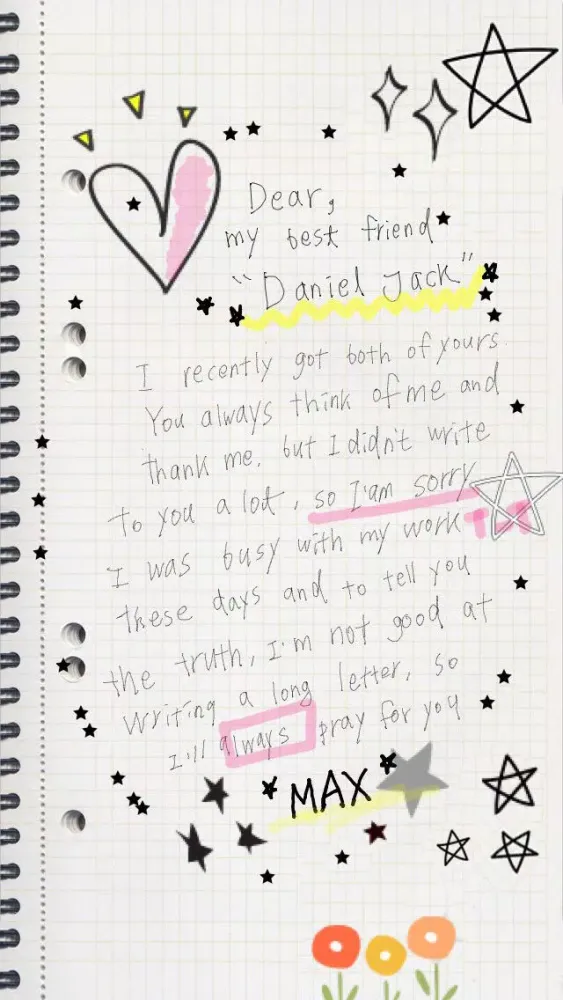 Dear,
my best friend
"Daniel Jack"
I recently got both of yours
You always think of me and
thank me. but I didn't write
to you a lot, so I'am sorry
I was busy with my work TT
these days and to tell you
the truth, I'm not good at
writing a long letter, so
I'll always pray for you
MAX